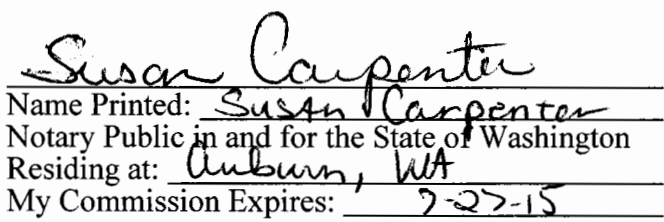 Susan Carpenter
Name Printed: Susan Carpenter
Notary Public in and for the State of Washington
Residing at: Auburn, WA
My Commission Expires: 7-27-15